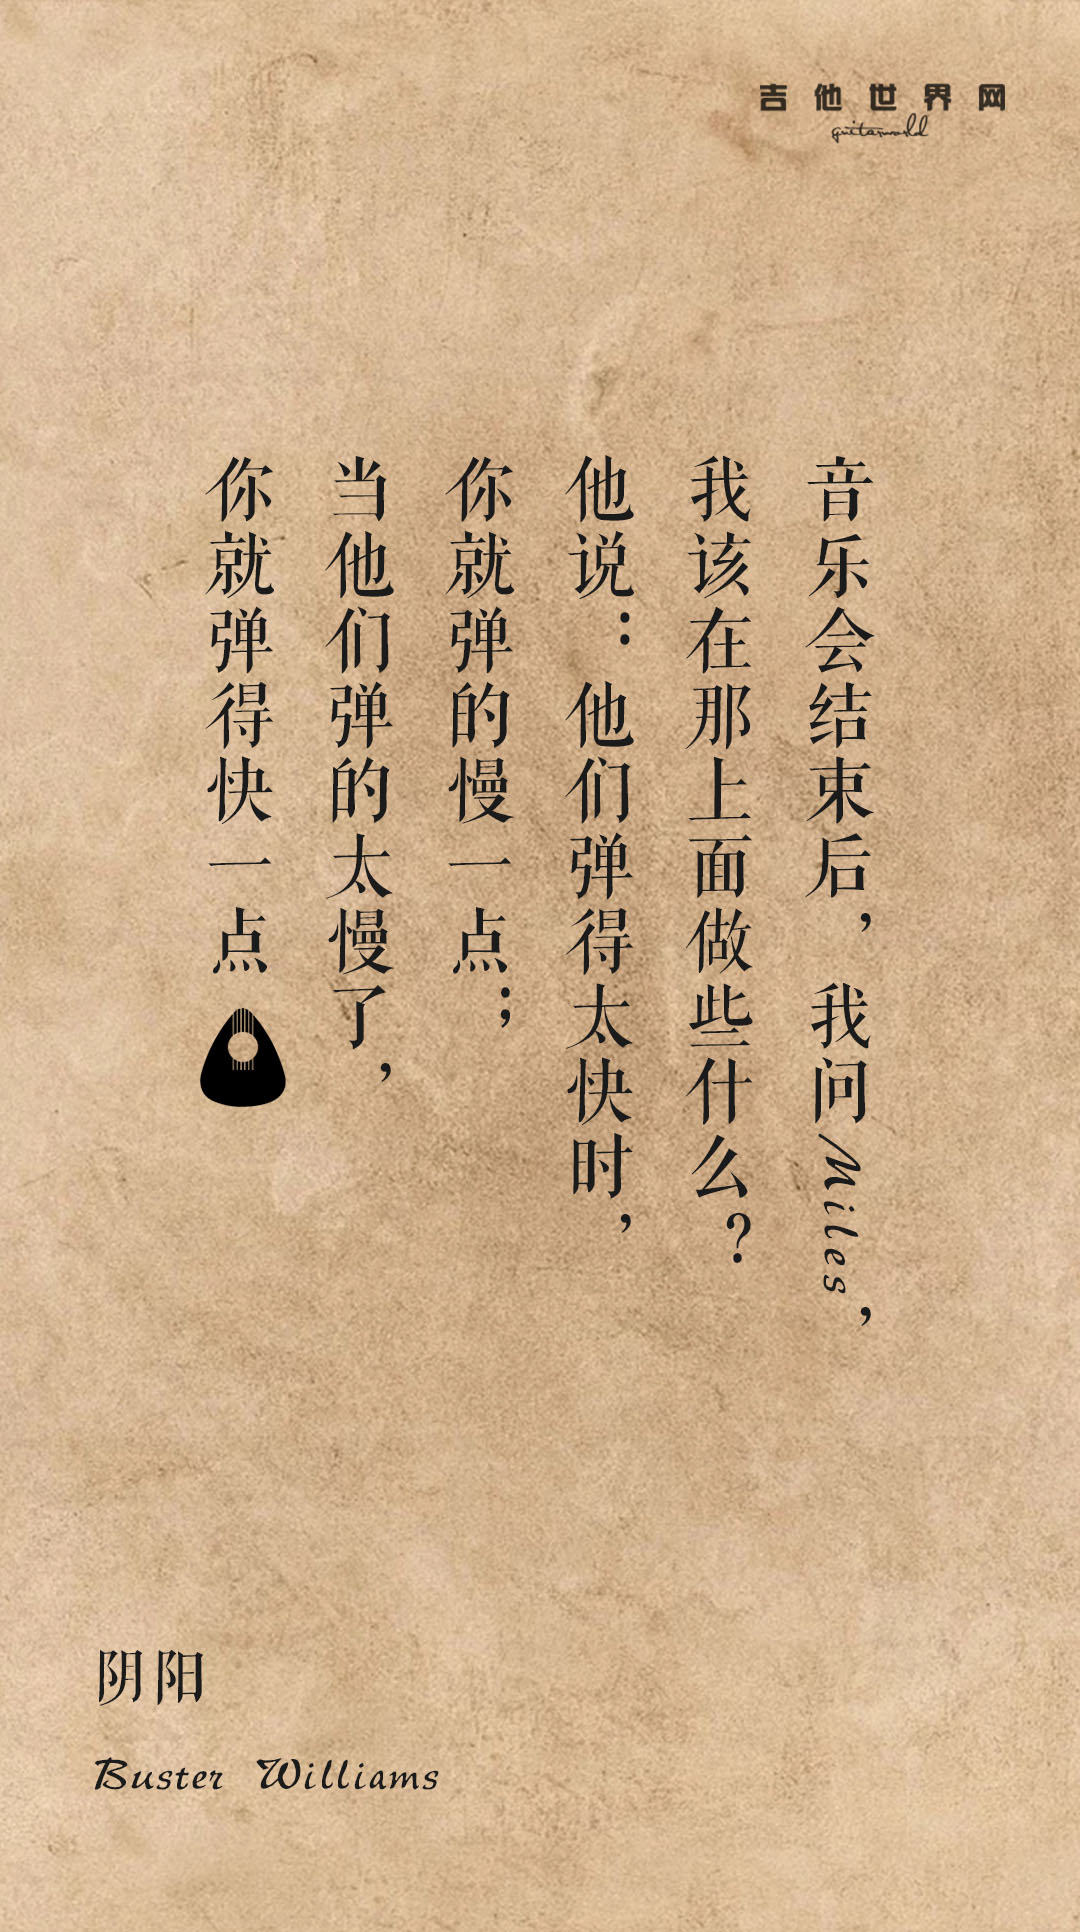 吉他世界网
guitarworld
音乐会结束后，我问Miles，
我该在那上面做些什么？
他说：他们弹得太快时，
你就弹的慢一点；
当他们弹的太慢了，
你就弹得快一点
阴阳
Buster Williams